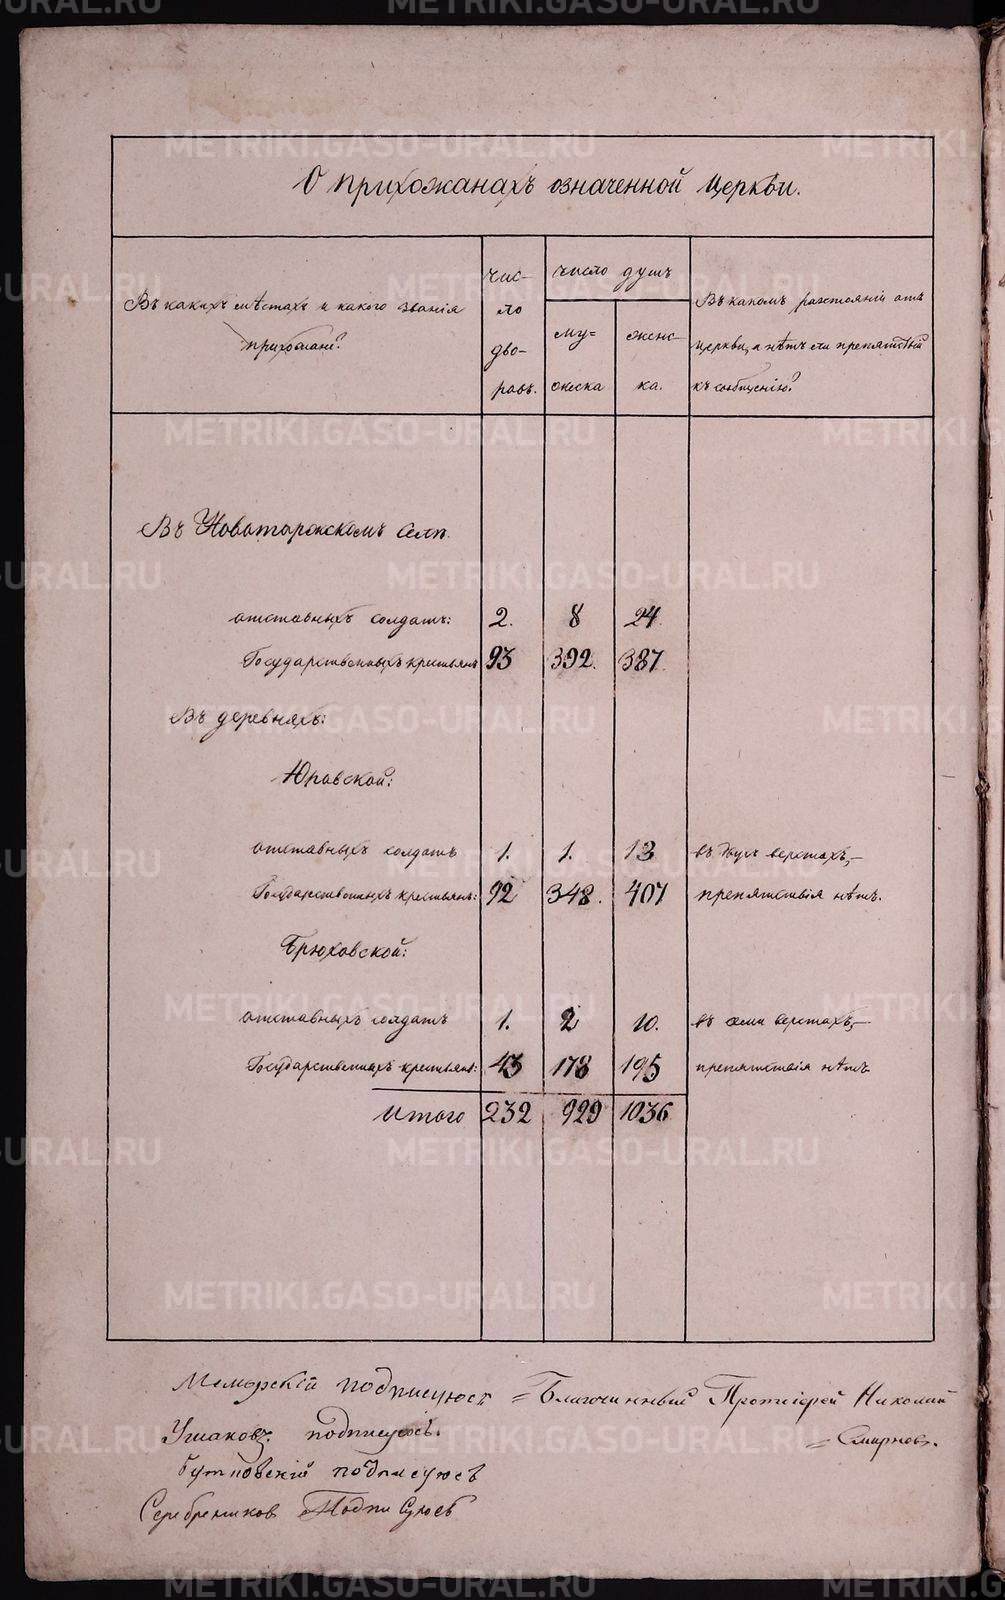 О прихожанахъ означенной церкви.
Въ какихъ мѣстахъ и какого званія
прихожане?
Чис-
ло
дво-
ровъ.
число душъ
му=
жеска
женс-
ка.
Въ какомъ разстояніи отъ
церкви, и нѣтъ ли препятствій
къ сообщенію?
Въ Новоторжскомъ селѣ.
отставныхъ солдатъ: 2. 8 24.
Государственныхъ крестьянъ 93 392. 387.
Въ деревняхъ:
Юровской:
отставныхъ солдатъ 1. 1. 13 въ двухъ верстахъ,—
Государственныхъ крестьянъ: 92 348. 407 препятствія нѣтъ.
Брюховской:
отставныхъ солдатъ 1. 2 10. въ семи верстахъ,—
Государственныхъ крестьянъ: 43 178 195 препятствія нѣтъ
Итого 232 929 1036
подписуюсь = Благочинный Протоіерей Николай
Ушаковъ подписуюсь.
= Смирновъ.
подписуюсь
Серебрениковъ Подписуюсь
METRIKI.GASO-URAL.RU